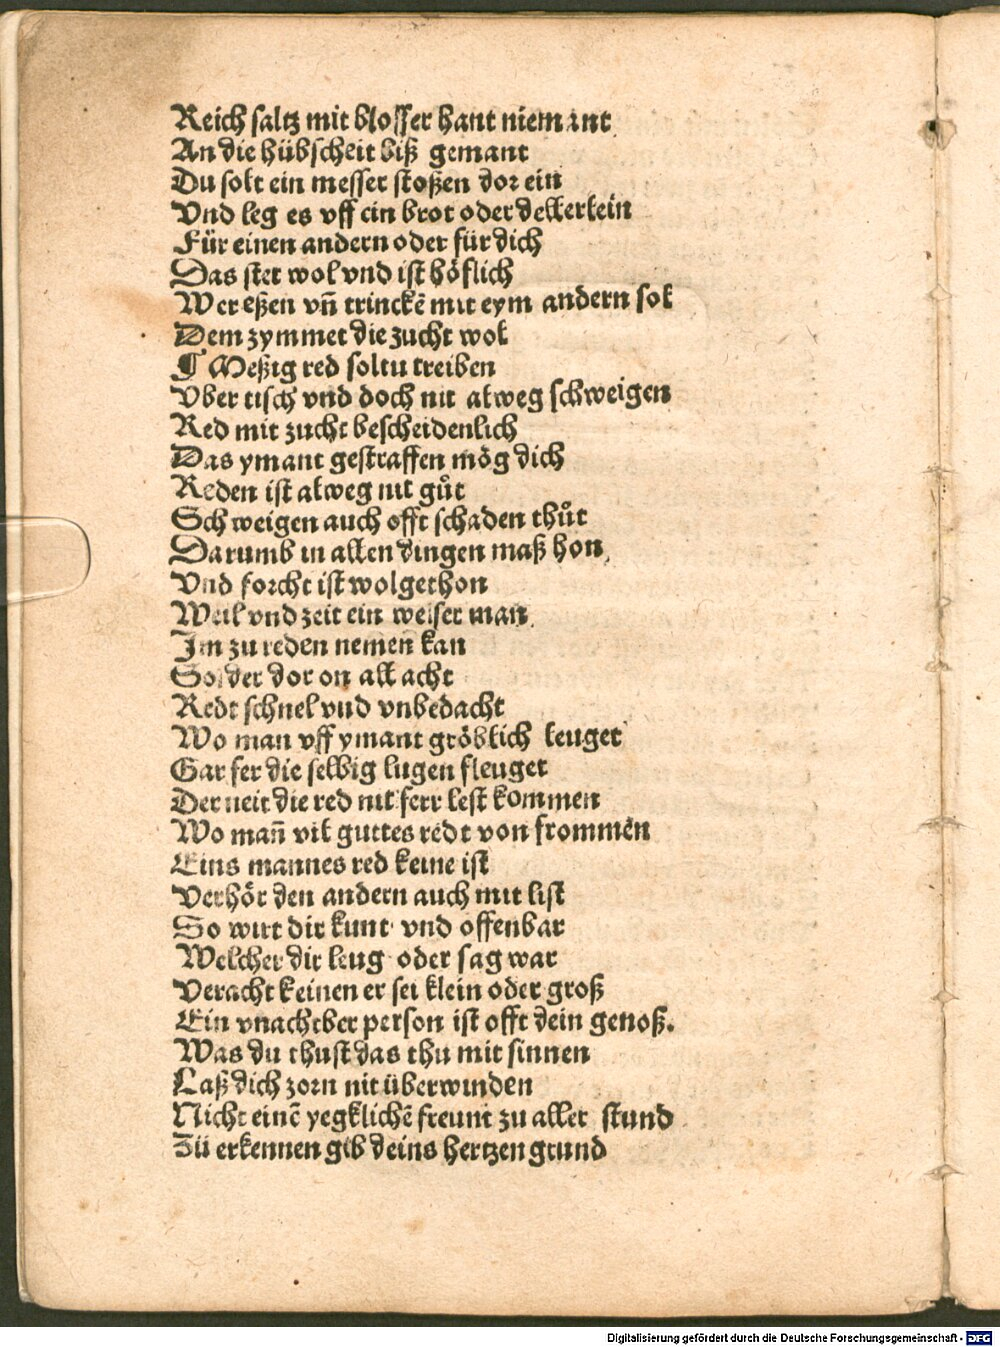 Reich saltz mit blosser hant niemant
An die hübscheit biß gemant
Du solt ein messer stoßen dor ein
Vnd leg es vff ein brot oder dellerlein
Für einen andern oder für dich
Das stet wol vnd ist höflich
Wer eßen vñ trinckē mit eym andern sol
Dem zymmet die zucht wol
¶ Meßig red soltu treiben
Vber tisch vnd doch nit alweg schweigen
Red mit zucht bescheidenlich
Das ymant gestraffen mög dich
Reden ist alweg nit gůt
Schweigen auch offt schaden thůt
Darumb in allen dingen maß hon
Vnd forcht ist wolgethon
Weil vnd zeit ein weiser man
Im zu reden nemen kan
So der dor on all acht
Redt schnel vnd vnbedacht
Wo man vff ymant gröblich leuget
Gar fer die selbig lugen fleuget
Der neit die red nit ferr lest kommen
Wo mañ vil guttes redt von frommen
Eins mannes red keine ist
Verhör den andern auch mit list
So wirt dir kunt vnd offenbar
Welcher dir leug oder sag war
Veracht keinen er sei klein oder groß
Ein vnachtber person ist offt dein genoß.
Was du thust das thu mit sinnen
Laß dich zorn nit überwinden
Nicht einē yegklichē freunt zu aller stund
Zü erkennen gib deins hertzen grund
Digitalisierung gefördert durch die Deutsche Forschungsgemeinschaft - DFG